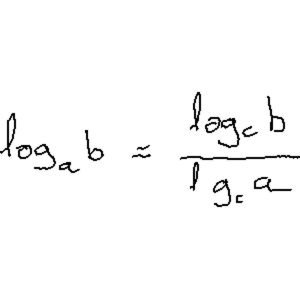 log_a b ≈ \frac{log_c b}{l g_c a}